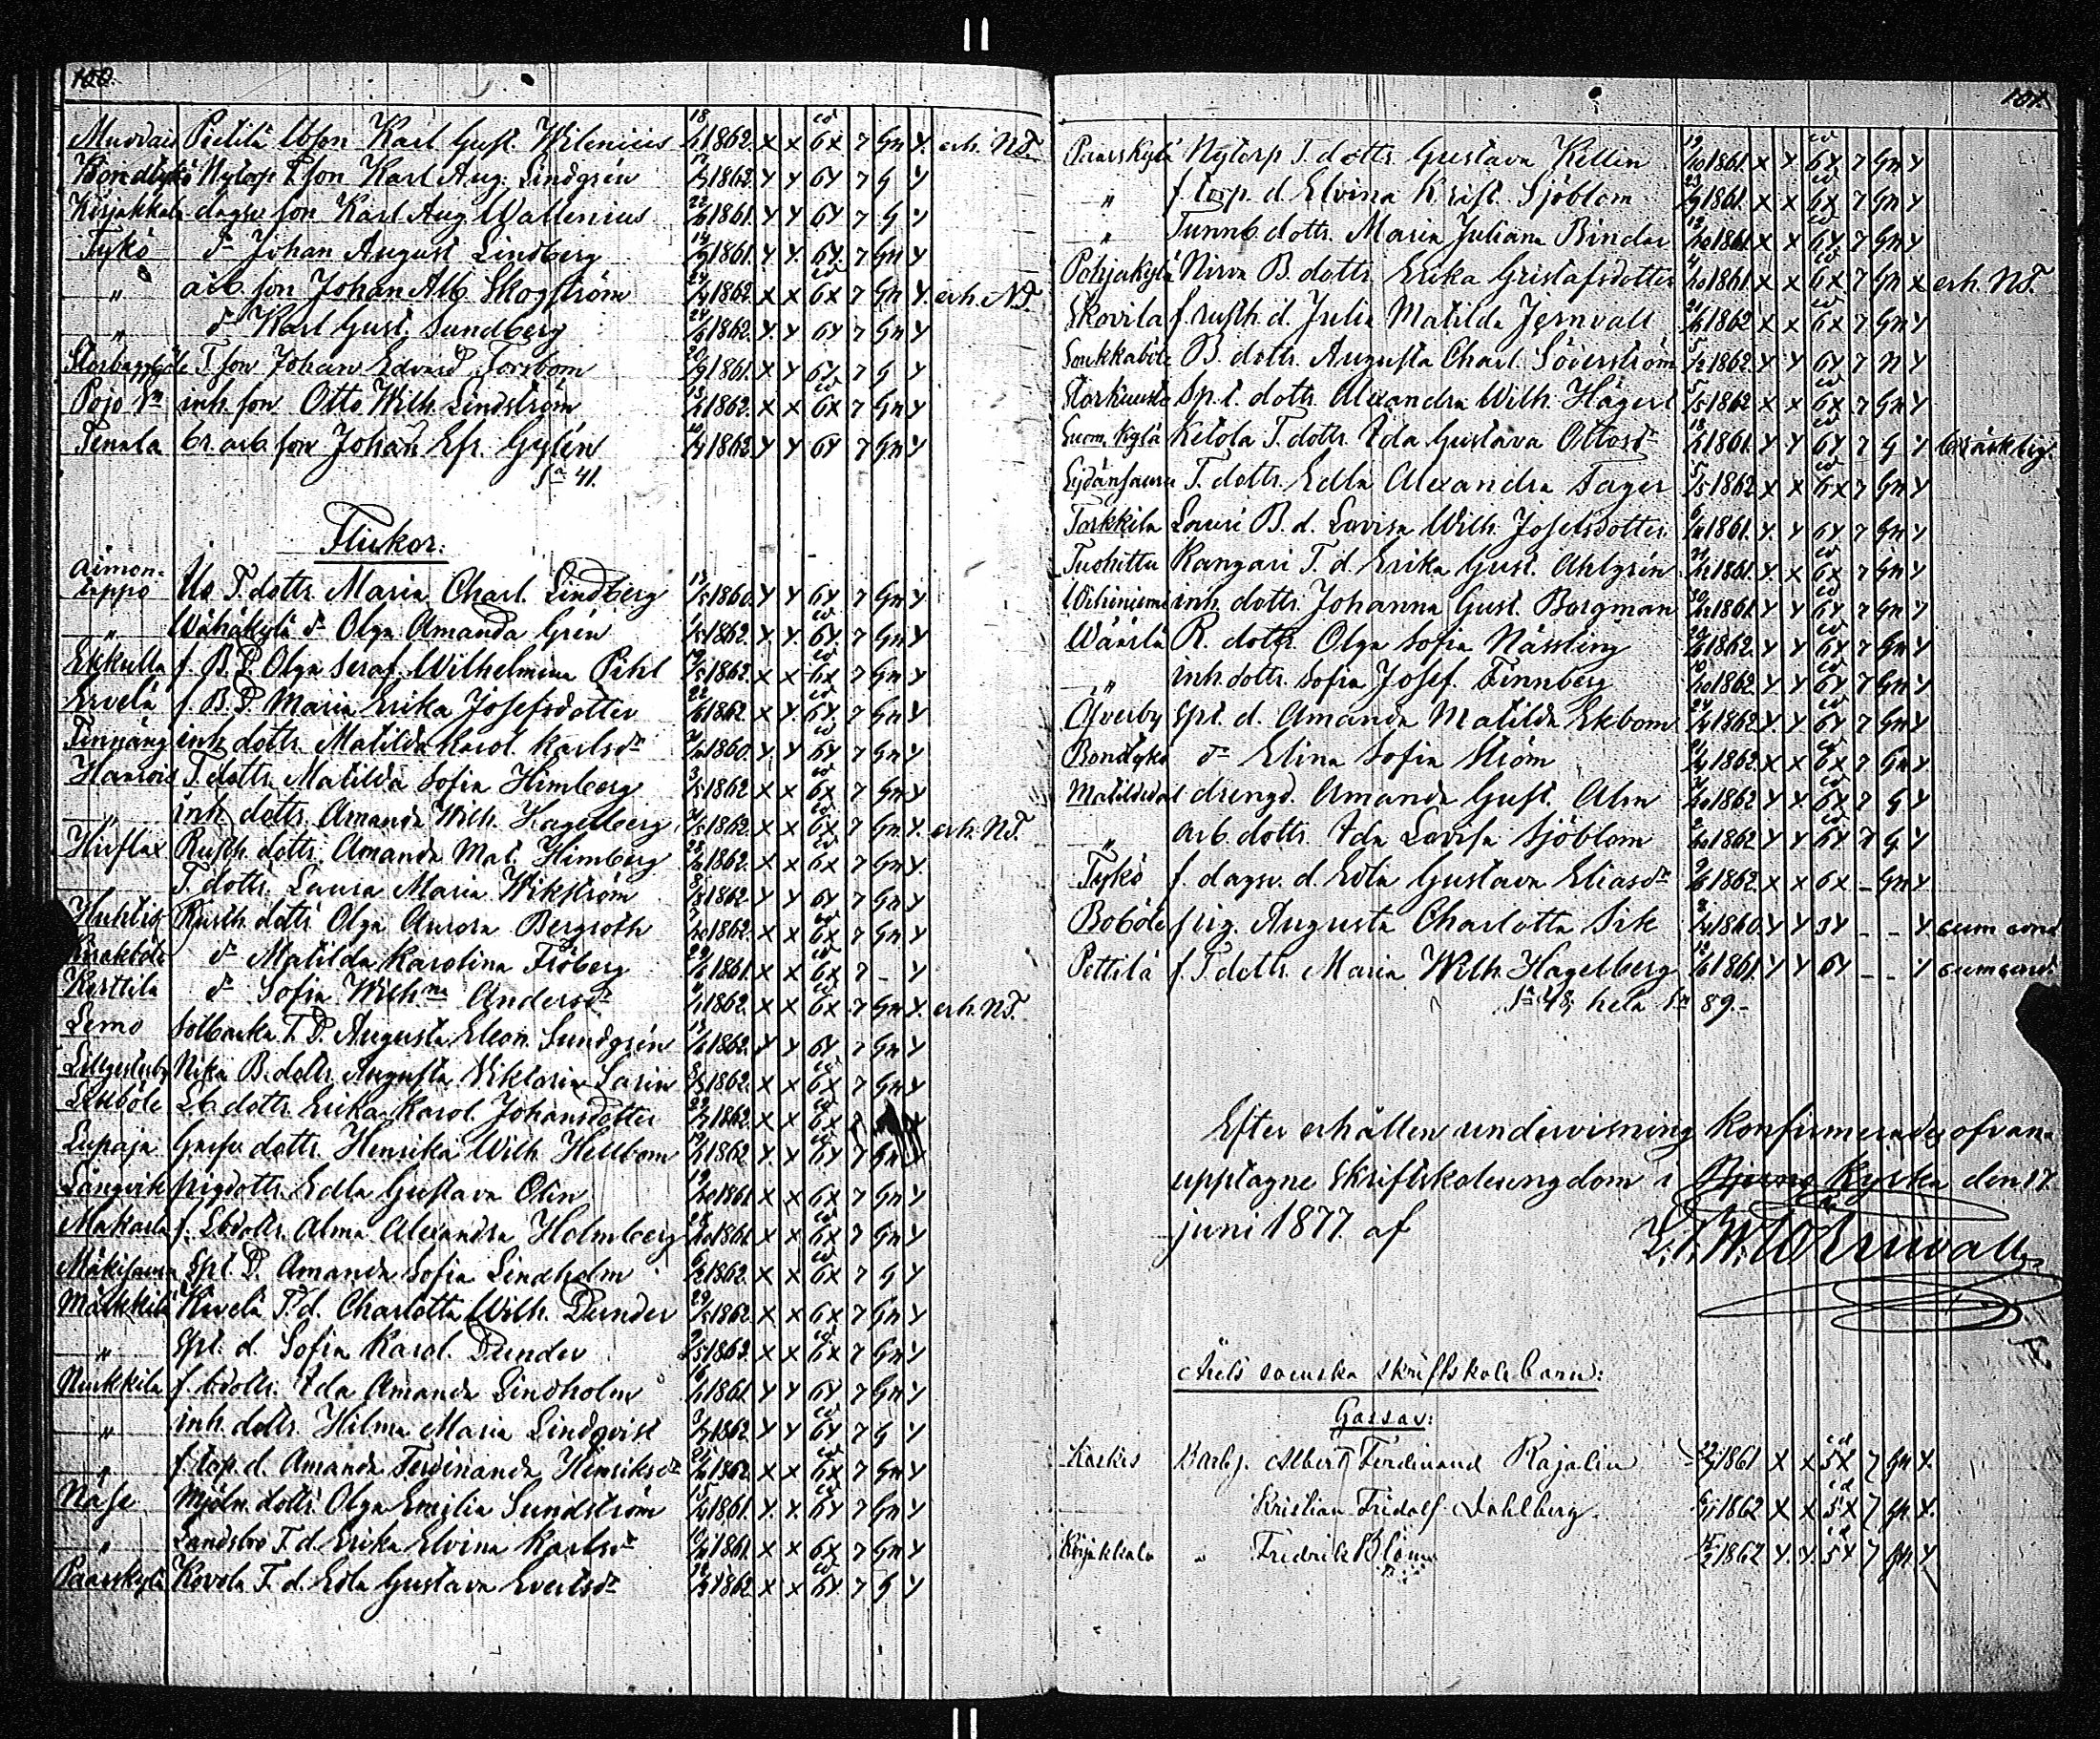 100.
Muddais Pietilä Lbson Karl Gust. Wilenius 1862. x x 6x 7 Gn y. erh. N.T.
Bondtykö Nytorp T. son Karl Aug. Lindgrén 1862. y y 6y 7 G y
Kirjakkala dagsv. son Karl Aug. Wallenius 1861. y y 6y 7 G y
Tykö d:o Johan August Lindberg 1861. y. y. 6y. 7 Gn y
" arb. son Johan Alb. Skogström 1862. x x 6x 7 Gn y. erh. N.T.
" d:o Karl Gust. Sundberg 1862. y. y. 6y 7 Gn y
T. son Johan Edvard Forsbom 1861. x y 6y. 7 G y
Pojo S:n inh. son Otto Wilh. Lindström 1862. x x 6x 7 Gn y
Tenala br. arb. son Johan Efr. Gylén 1862 y y 6y 7 Gn y
S:a 41.
Flickor:
Aimon-
uppo Uo T. dottr. Maria Charl. Lindberg 1860. y y 6y 7 Gn y
" Wähäkylä d:o Olga Amanda Grén 1862. y y. 6y. 7 Gn y
Ekkulla f. B. D. Olga Seraf. Wilhelmina Pihl 1862. x x 6x 7 Gn y
Ervelä f. B. D. Maria Erika Josefsdotter 1862. x y. 6y. 7 Gn y
Finnäng inh. dottr. Matilda Karol. Karlsd:r 1860. y y 6y 7 Gn y
Hannois T. dottr. Matilda Sofia Himberg 1862 x x 6x 7 Gn y
" inh. dottr. Amanda Wilh. Hagelberg 1862. x x 6x 7 Gn y. erh. N.T.
Hirflax Rusth. dottr. Amanda Mat. Himberg 1862. x x 6x 7 Gn y.
T. dottr. Laura Maria Wikström 1862 y y 6y 7 Gn y
Huhtis Rusth. dottr. Olga Aurora Bergroth 1862. x x 6x 7 Gn y
d:o Matilda Karolina Fröberg 1861. x x 6x 7 - y
Kerttila d:o Sofia Wilh:na Andersd:r 1862. x x 6x 7 Gn y. erh. N.T.
Lemo Solbacka T. D. Augusta Eleon. Sundgrén 1862. y y 6y 7 Gn y
Nika B. dottr. Augusta Viktoria Larin 1862. x x 6x 7 Gn y
Lb. dottr. Erika Karol. Johansdotter 1862. x x 6x
Lupaja dottr. Henrika Wilh. Hellbom 1862 y. y 6y 7 Gn y
Långvik frigdottr. Edla Gustava Olin 1861 x x 6x 7 Gn y
Makarla f. Lbdottr. Alma Alexandra Holmberg 1861 x x 6x 7 Gn y
Mäkisauru Spl. D. Amanda Sofia Lindholm 1862. x x 6x 7 G y
Mälkkilä Kivelä T. d. Charlotta Wilh. Dunder 1862 x x 6x 7 Gn y
" Spl. d. Sofia Karol. Dunder 1862. x x 6x 7 Gn y
Nurkkila f. bdottr. Ida Amanda Lindholm 1861 y y 6y 7 Gn y
" inh. dottr. Hilma Maria Lindqvist 1862 y y 6y 7 G y
" f. torp. d. Amanda Ferdinanda Henriksd:r 1862. x x 6x 7 Gn y
Näse Mjöln. dottr. Olga Emilia Sundström 1861. y. x. 6y 7 Gn y
" Landsbro T. d. Erika Elvina Karlsd:r 1861. x x 6x 7 Gn y
Paarskylä Kovola T. d. Edla Gustava Evertsd:r 1862. x x 6y. 7 G y
101.
Paarskylä Nytorp T. dottr. Gustava Kellin 1861. x y 6y 7 Gn y
" f. torp. d. Elvina Krist. Sjöblom 1861. x x 6x 7 Gn y
" Tunnb. dottr. Maria Juliana Binder 1861. x x 6y. 7 Gn y
Pohjakylä Nirva B. dottr. Erika Gustafsdotter 1861. x x 6x 7 Gn x erh. N.T.
Skovila f. rusth. d. Julia Matilda Jernvall 1862 x x 6x 7 Gn y
B. dottr. Augusta Charl. Söderström 1862. y y 6y 7 N y
Spl. dottr. Alexandra Wilh. Hägert 1862 x x 6x 7 Gn y
Suom. kylä Ketola T. dottr. Ida Gustava Ottosd:r 1861. y y 6y 7 G y
T. dottr. Edla Alexandra Fager 1862 x x 6x 7 Gn y
Torkkila Lauri B. d. Lovisa Wilh. Josefsdotter 1861. y. y 6y 7 Gn y
Tuohittu Kangari T. d. Erika Gust. Ahlgrén 1861. y. x 6x 7 Gn y
Wihiniemi inh. dottr. Johanna Gust. Borgman 1861. y y 6y 7 Gn y
Wäärlä R. dottr. Olga Sofia Nässling 1862. y y 6y 7 Gn y
" inh. dottr. Sofia Josef. Finnberg 1862. y y 6y 7 Gn y
Öfverby Spl. d. Amanda Matilda Ekbom 1862. y. y 6y 7 Gn y
Bondtykö d:o Elina Sofia Ström 1862. x x 6x 7 Gn y.
Matildedal drengd. Amanda Gust. Alm 1862 y y 6y 7 G y
" arb. dottr. Ida Lovisa Sjöblom 1862 y y 6y 7 G y
Tykö f. dagsv. d. Edla Gustava Eliasd:r 1862. x x 6x - Gn y.
Boböle pig. Augusta Charlotta Sirk 1860. y y 3y - - y cum cond.
Pettilä f. T. dottr. Maria Wilh. Hagelberg 1861. y y 6y - - y cum cond.
S:a 48; hela S:n 89.-
Efter erhållen undervisning konfirmerades ofvan
upptagne skriftskoleungdom i Bjerno Kyrka den 17
juni 1877. af
Årets svenska skriftskolebarn:
Gossar:
Koskis Albert Ferdinand Rajalin 1861 x x 5x 7 Gn x.
Kristian Fridolf Dahlberg. 1862 x x 5x 7 Gn x.
Kirjakkala " Fredrik Blom 1862 y. y. 5x 7 Gn y.